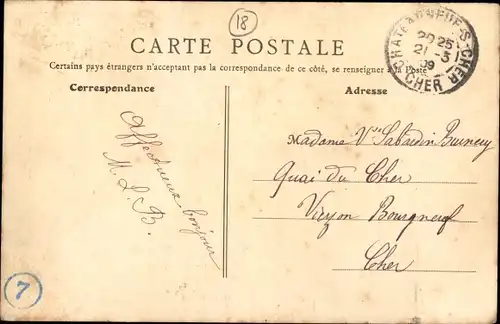 18
CARTE POSTALE
Certains pays étrangers n'acceptant pas la correspondance de ce côté, se renseigner à la Poste
CHATEAUNEUF-S-CHER
20 25
21 - 3
09
CHER
Correspondance
Adresse
Affectueux bonjour
M. L. B.
Madame Vve Sabardin Burnery
Quai du Cher
Vierzon Bourgneuf
Cher
7